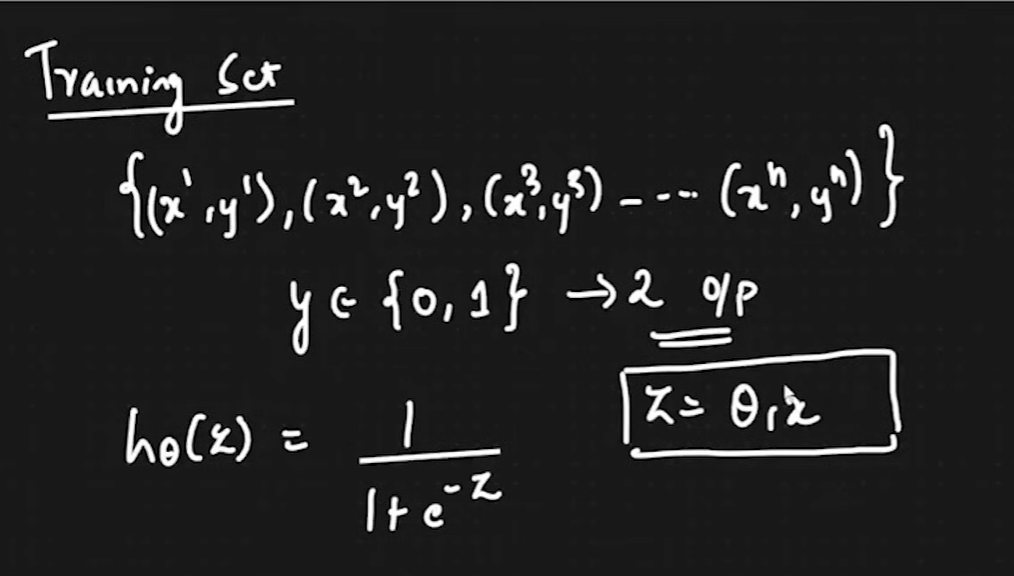 Training Set
{(x¹, y¹), (x², y²), (x³, y³) - --- (xⁿ, yⁿ)}
y ∈ {0, 1} → 2 o/p
z = θ₁x
hθ(x) = 1 / (1 + e^-z)